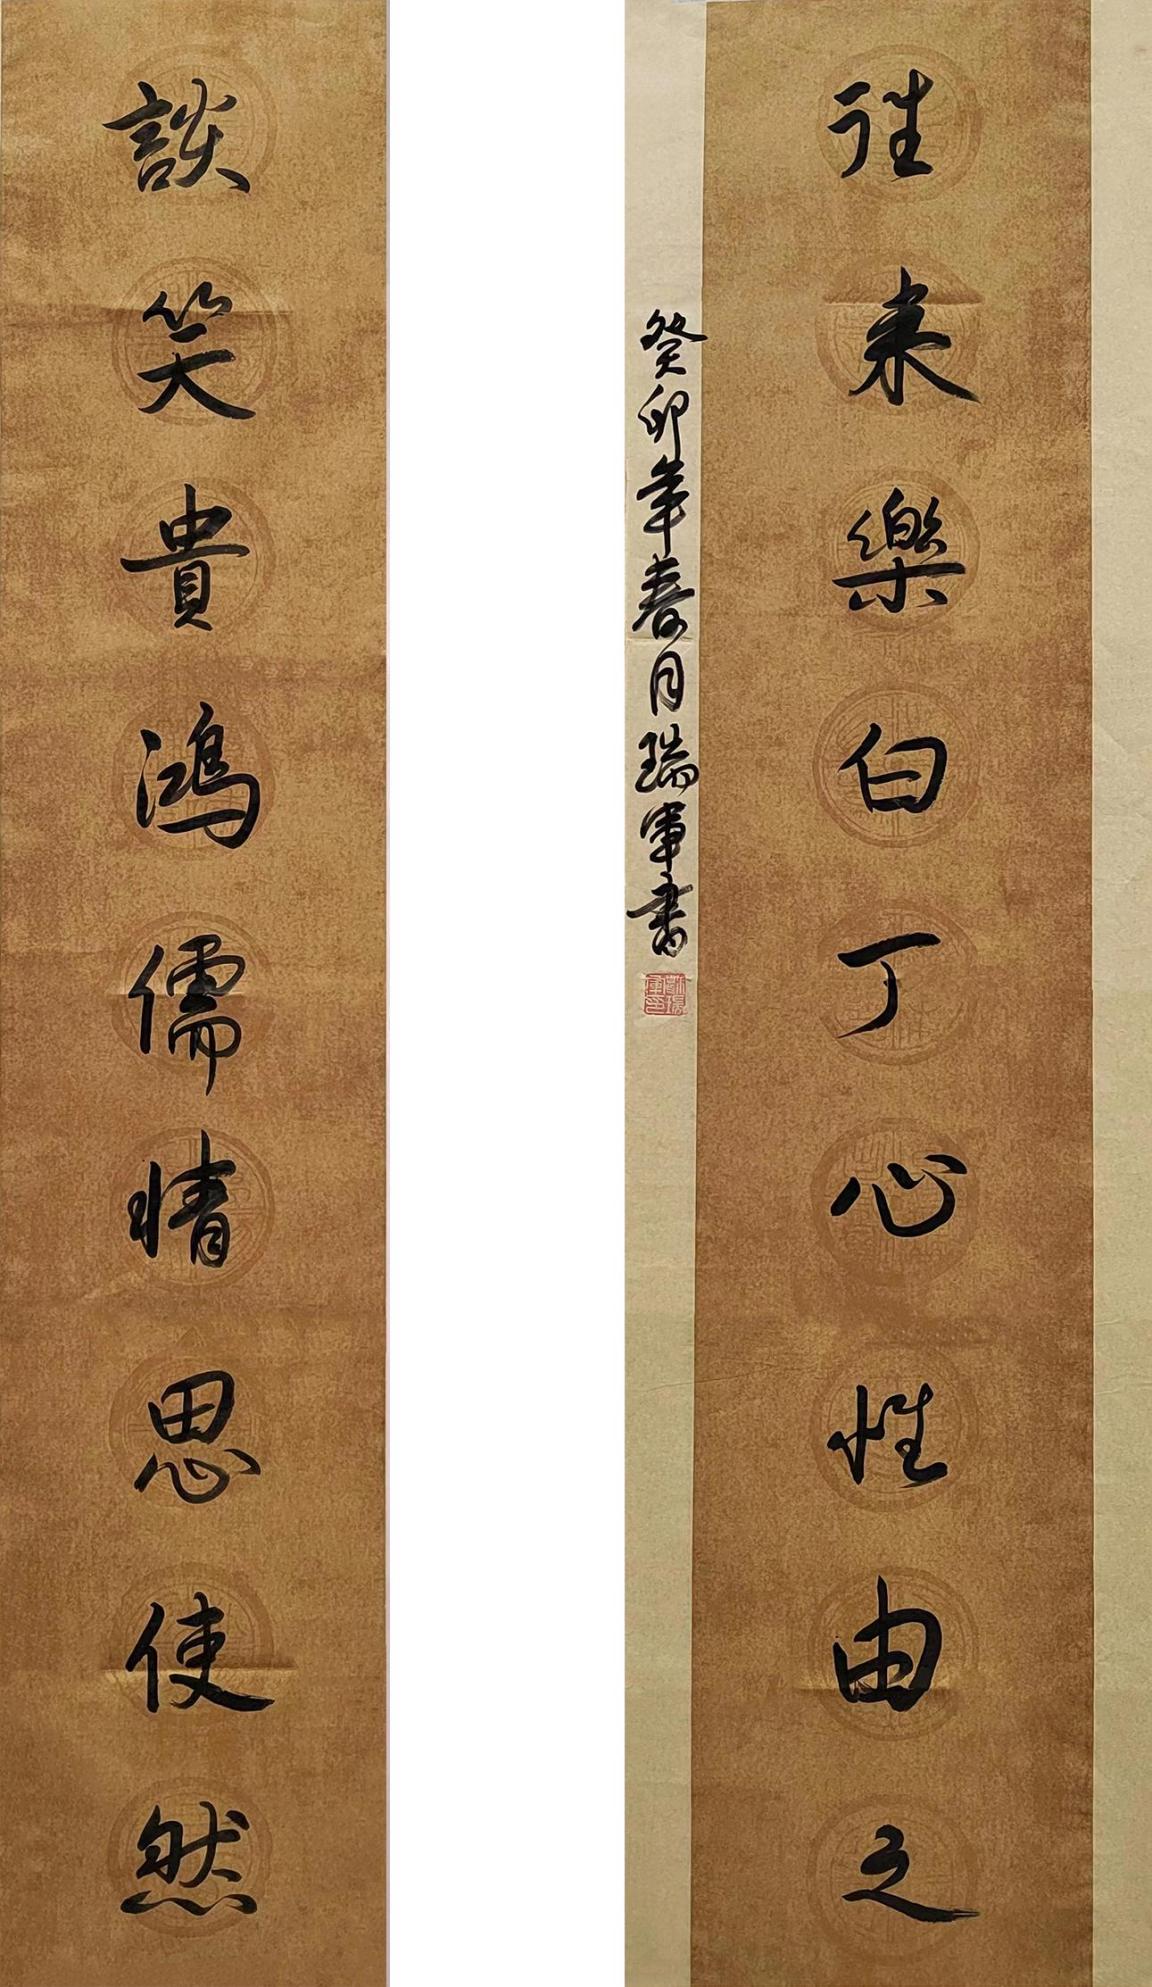 往来樂白丁心性由之
癸卯年春月瑞軍書
談笑貴鴻儒情思使然